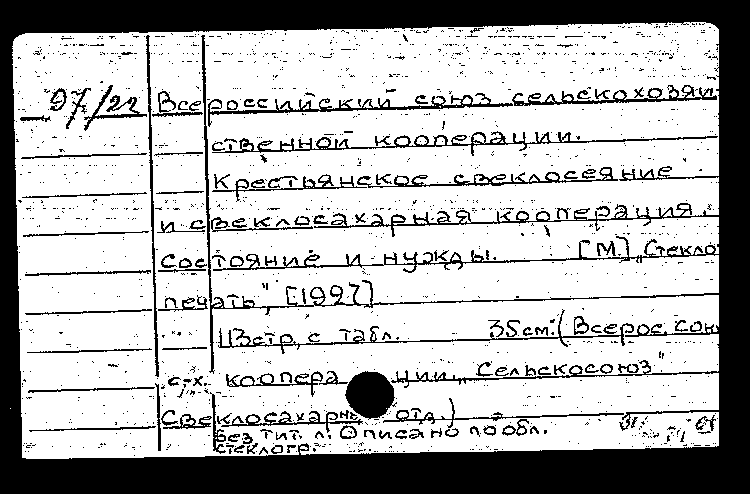 97/22 Всероссийский союз сельскохозяй
ственной кооперации.
Крестьянское свеклосеяние
и свеклосахарная кооперация.
Состояние и нужды. [М.] „Стекло
печать", [1927]
113стр. с табл. 35см. (Всерос. сою
с-х. коопера ции „Сельскосоюз"
Свеклосахарн. отд.)
Без тит. л. Описано по обл.
стеклогр.